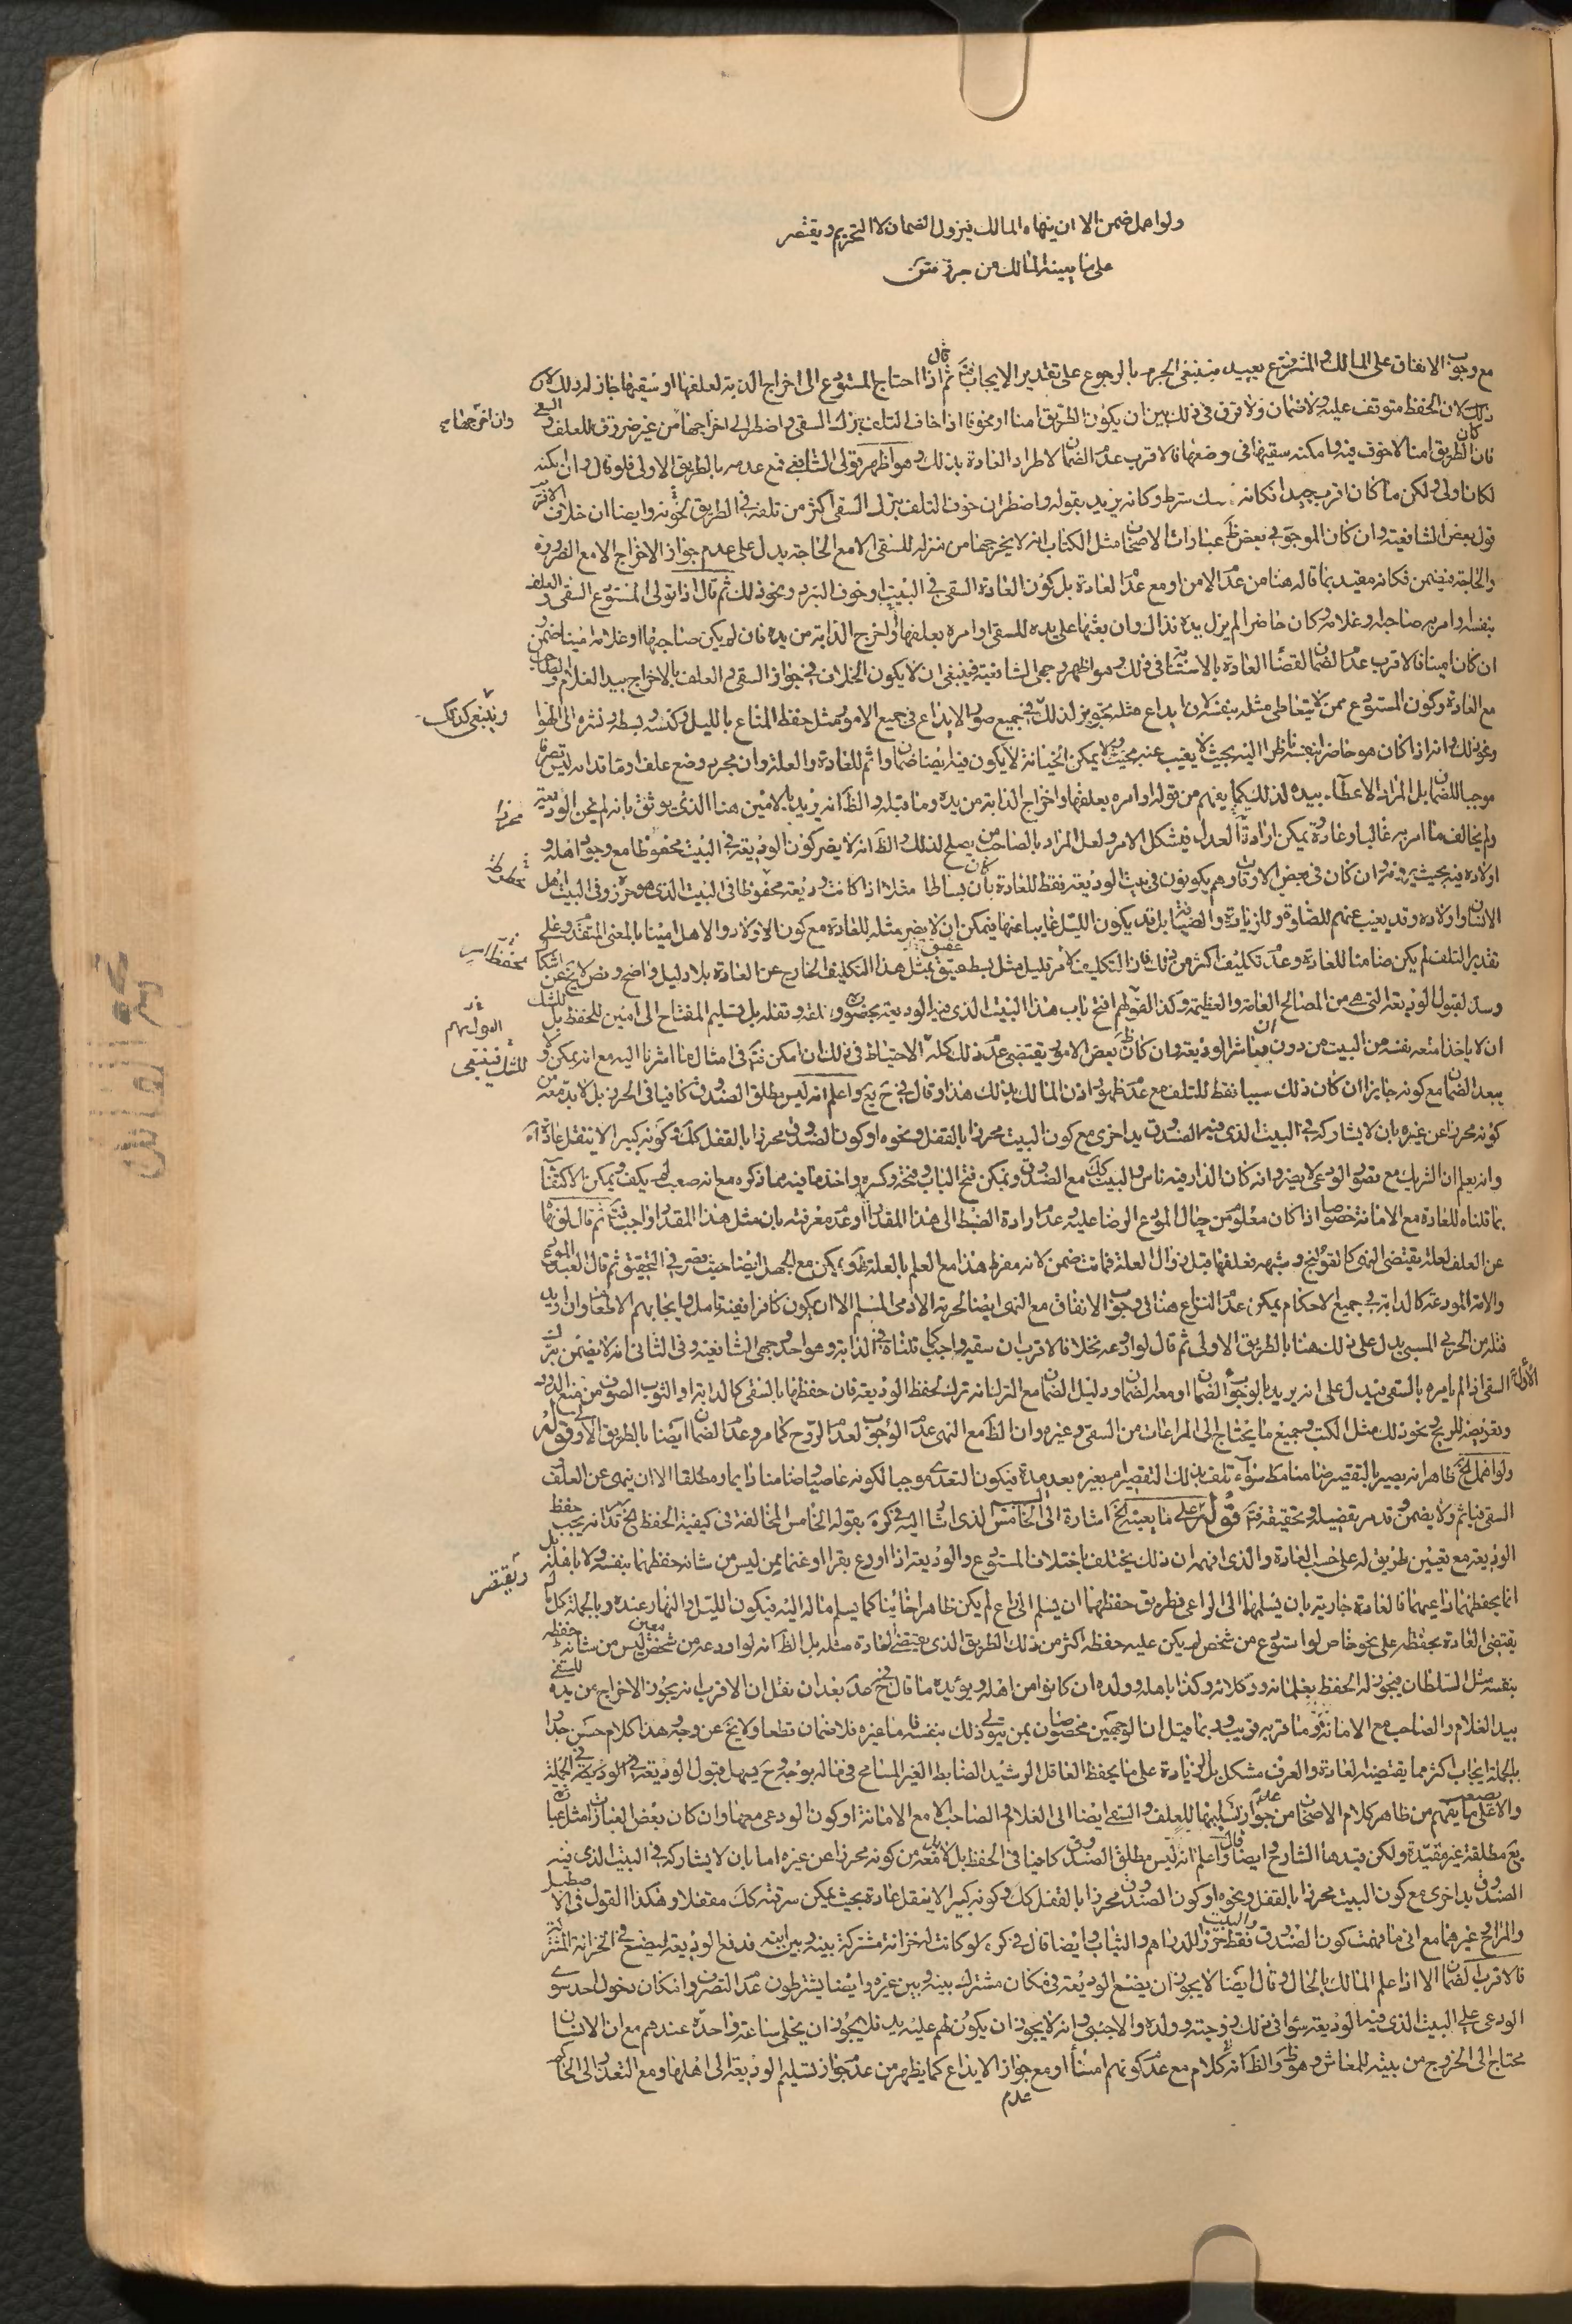 ولو اهمل ضمن الا ان ينهاه المالك فيزول الضمان لا التحريم ويقتصر
على ما يعينه المالك من حرز متن
مع وجوب الانفاق على المالك والمتبرع بعيد فينبغى الجزم بالرجوع على تقدير الايجاب ثم قال اذا احتاج المستودع الى اخراج الدابة لعلفها او سقيها جاز له ذلك لان
ذلك لان الحفظ متوقف عليه ولا ضمان ولا فرق فى ذلك بين ان يكون الطريق امنا او مخوفا اذا خاف التلف بترك السقى واضطر الى اخراجها من غير ضرورة للعلف و السقى
وان اخرجها
فان كان الطريق امنا لا خوف فيه وامكنه سقيها فى وضعها فالاقرب عدم الضمان لاطراد العادة بذلك وهو اظهر قولى الشافعى فمع عدمه بالطريق الاولى فلو قال وان امكنه
لكان اولى ولكن ما كان اقرب جيدا فكانه شرط وكانه يريد بقوله واضطر ان خوف التلف بترك السقى اكثر من تلفه فى الطريق لخوفه وايضا ان خلاف الاقرب
قول بعض الشافعية وان كان الموجود فى بعض عبارات الاصحاب مثل الكتاب انه لا يخرجها من منزله للسقى الا مع الحاجة يدل على عدم جواز الاخراج الا مع الضرورة
والحاجة فيضمن فكانه مقيد بما قاله هنا من عدم الامن او مع عدم العادة بل كون العادة السقى فى البيت او خوف البرد ونحو ذلك ثم قال اذا تولى المستودع السقى و العلف
بنفسه او امر به صاحبه وغلامه وكان حاضرا لم يزل يده فذاك وان بعثها على يده للسقى او امره بعلفها واخرج الدابة من يده فان لم يكن صاحبها او غلامه امينا ضمن و
ان كان امينا فالاقرب عدم الضمان لقضاء العادة بالاستنابة فى ذلك وهو اظهر وجهى الشافعية فينبغى ان لا يكون الخلاف فى جواز السقى والعلف بالاخراج بيد الغلام والصاحب
مع العادة وكون المستودع ممن لا يتعاطى مثله بنفسه لان ايداع مثله تجويز لذلك فى جميع صور الايداع فى جميع الامور مثل حفظ المتاع بالليل وكنسه وبسطه ونشره الى الهواء
وينبغى كذلك
ونحو ذلك وانه اذا كان هو حاضرا بنفسه ناظرا اليه بحيث لا يغيب عنه بحيث لا يمكن الخيانة لا يكون فيه ايضا ضمان واثم للعادة والعلة وان مجرد وضع علف او ماء قدامه ليس تصرفا
موجبا للضمان بل المراد الاعطاء بيده لذلك كما يفهم من قوله او امره بعلفها واخراج الدابة من يده وما قبله والظاهر انه يريد بالامين هنا الذى يوثق بانه لم يخن الوديعة
ولم يخالف ما امر به غالبا وعادة ويمكن ارادة العدل فيشكل الامر ولعل المراد بالصاحب من يصلح لذلك والظاهر انه لا يضر كون الوديعة فى البيت محفوظا مع وجود اهله و
محرزا
اولاده فيه بحيث يرونه وان كان فى بعض الاوقات وهم يكونون فى بيت الوديعة فقط للعادة بان كان بساطا مثلا اذا كانت وديعة محفوظا فى البيت الذى هو حرز وفى البيت اهل
محفوظة
الانسان واولاده وقد يغيب عنهم للصلوة وللزيارة والضيافة بل قد يكون الليل غايبا عنها فيمكن ان لا يضر مثله للعادة مع كون الاولاد والاهل امينا بالمعنى المتقدم وعلى
تقدير التلف لم يكن ضامنا للعادة وعدم تكليف اكثر من ذلك فان التكليف لامر قليل مثل بسط عتيق بمثل هذا التكليف الخارج عن العادة بلا دليل واضح ونص لا يخ عن اشكال
وسد لقبول الوديعة التى هى من المصالح العامة والعظيمة وكذا لقولهم افتح باب هذا البيت الذى فيه الوديعة بحضوره وغلقه وقفله بل تسليم المفتاح الى امين للحفظ بل
ان لا ياخذ امتعة نفسه من البيت من دون ان يباشر الوديعة وان كان بعض الامور يقتضى عدم ذلك كله الاحتياط فى ذلك ان امكن فتم فى امثال ما اشرنا اليه مع انه يمكن
للشك فينبغى
يبعد الضمان مع كونه جايزا ان كان ذلك سببا فقط للتلف مع عدم ظهور اذن المالك بذلك هذا وقال فى ح يع واعلم انه ليس مطلق الصندوق كافيا فى الحرز بل لا بد معه من
كونه محرزا عن غيره بان لا يشاركه فى البيت الذى فيه الصندوق يد اخرى مع كون البيت محرزا بالقفل ونحوه او كون الصندوق محرزا بالقفل كك وكونه كبيرا لا ينتقل عادة اه
وانه يعلم ان الشريك مع تصور الودعى لا يضر وانه كان الدار فيه ناس والبيت كك مع الصندوق ويمكن فتح الباب وفتحه وكسره واخذ ما فيه مما ذكره مع انه صعب لم يكف ويمكن الاكتفاء
بما قلناه للعادة مع الامانة خصوصا اذا كان معلوما من حال المودع الرضا عليه وعدم ارادة الضبط الى هذا المقدار او عدم معرفته بان مثل هذا المقدار واجب فتم ثم قال لو نهاه
عن العلف لعلة يقتضى النهى كالقولنج وشبهه فعلفها قبل زوال العلة فماتت ضمن لانه مفرط هذا مع العلم بالعلة ظ ويمكن مع الجهل ايضا حيث قصر فى التحقيق ثم قال العبد المودع
والامة المودعة كالدابة فى جميع الاحكام يمكن عدم النزاع هنا فى وجوب الانفاق مع النهى ايضا لحرمة الادمى المسلم الا ان يكون كافرا ففيه تامل وايجابهم الاطعام وان اريد
قتله من الحربى المسبى يدل على ذلك هنا بالطريق الاولى ثم قال لو اودعه نخلا فالاقرب ان سقيه واجب كما قلناه فى الدابة وهو احد وجهى الشافعية وفى الثانى انه لا يضمن بترك
السقى اذا لم يامره بالسقى فيدل على انه يريد بالوجوب الضمان او معه الضمان ودليل الضمان مع الترك انه ترك لحفظ الوديعة فان حفظها بالسقى كالدابة او الثوب الصوف من منع الدود
وتعريضه للريح ونحو ذلك مثل الكتب وجميع ما يحتاج الى المراعات من السقى وغيره وان الظ مع النهى عدم الوجوب لعدم الروح كما مر وعدم الضمان ايضا بالطريق الاولى قوله
ولو اهمل الخ ظاهرا انه يصير بالتقصير ضامنا مط سواء تلف بذلك التقصير ام بغيره بعد مدة فيكون التعدى موجبا لكونه غاصبا ضامنا دايما ومطلقا الا ان ينهى عن العلف
السقى فياثم ولا يضمن وقد مر تفصيله وتحقيقه فتم قوله على ما يعينه الخ اشارة الى الخامس الذى اشار اليه فى كره بقوله الخامس المخالفة فى كيفية الحفظ الخ قد انه يجب حفظ
الوديعة مع تعيين طريق له على حسب العادة والذى افهمه ان ذلك يختلف باختلاف المستودع والوديعة اذا اودع بقرا او غنما ممن ليس من شانه حفظهما بنفسه ولا باهله بل
ويقتصر
انما يحفظهما راعيهما فالعادة جارية بان يسلمها الى الراعى فطريق حفظهما ان يسلم الى راع لم يكن ظاهرا خائنا كما يسلم ماله اليه فيكون الليل والنهار عنده وبالجملة كل ما
يقتضى العادة بحفظه على نحو خاص لو استودع من شخص لم يكن عليه حفظه اكثر من ذلك الطريق الذى يقتضى العادة مثله بل الظ انه لو اودعه من شخص معين ليس من شانه حفظه
بنفسه مثل السلطان فيجوز له الحفظ بغلمانه ووكلائه وكذا باهله وولده ان كانوا من اهله ويؤيده ما قال فى كره بعد ان نقل ان الاقرب انه يجوز الاخراج عن يده للسقى
بيد الغلام والصاحب مع الامانة وما قربه قريب وربما قيل ان الوجهين مخصوصان بمن يتولى ذلك بنفسه فاما غيره فلا ضمان قطعا ولا يخ عن وجه هذا كلام حسن جدا
بالجملة ايجاب اكثر مما يقتضيه العادة والعرف مشكل بل الزيادة على ما يحفظ العاقل الرشيد الضابط الغير المسامح فى ماله يوجه وح يسهل قبول الوديعة
والا على ما يفهم من ظاهر كلام الاصحاب من عدم جواز تسليمها للعلف والسقى ايضا الى الغلام والصاحب الا مع الامانة او كون الودعى معها وان كان بعض العبارات مثل
يع مطلقة غير مقيدة ولكن قيدها الشارح وايضا قال واعلم انه ليس مطلق الصندوق كافيا فى الحفظ بل لا بد معه من كونه محرزا عن غيره اما بان لا يشاركه فى البيت الذى فيه
الصندوق يد اخرى مع كون البيت محرزا بالقفل ونحوه او كون الصندوق محرزا بالقفل كك وكونه كبيرا لا ينقل عادة بحيث يمكن سرقته كك مقفلا وهكذا القول فى الاصطبل
والمراح وغيرهما مع انى ما فهمت كون الصندوق فقط حرزا للدراهم والثياب وايضا قال فى كره لو كانت له خزانة مشتركة بينه وبين ابنه فدفع الوديعة ليضع فى الخزانة المشتركة
فالاقرب الضمان الا اذا علم المالك بالحال وقال ايضا لا يجوز ان يضع الوديعة فى مكان مشترك بينه وبين غيره وايضا يشترطون عدم التصرف وامكان دخول احد سوى
الودعى على البيت الذى فيه الوديعة سواء فى ذلك زوجته وولده والاجنبى وانه لا يجوز ان يكون لهم عليه يد فلا يجوز ان يخلى ساعة واحدة عندهم مع ان الانسان
محتاج الى الخروج من بيته للمعاش وهو ظ والظ انه كلام مع عدم كونهم امناء او مع جواز الايداع كما يظهر من عدم جواز تسليم الوديعة الى اهلها ومع التعذر الى الحاكم
عدم